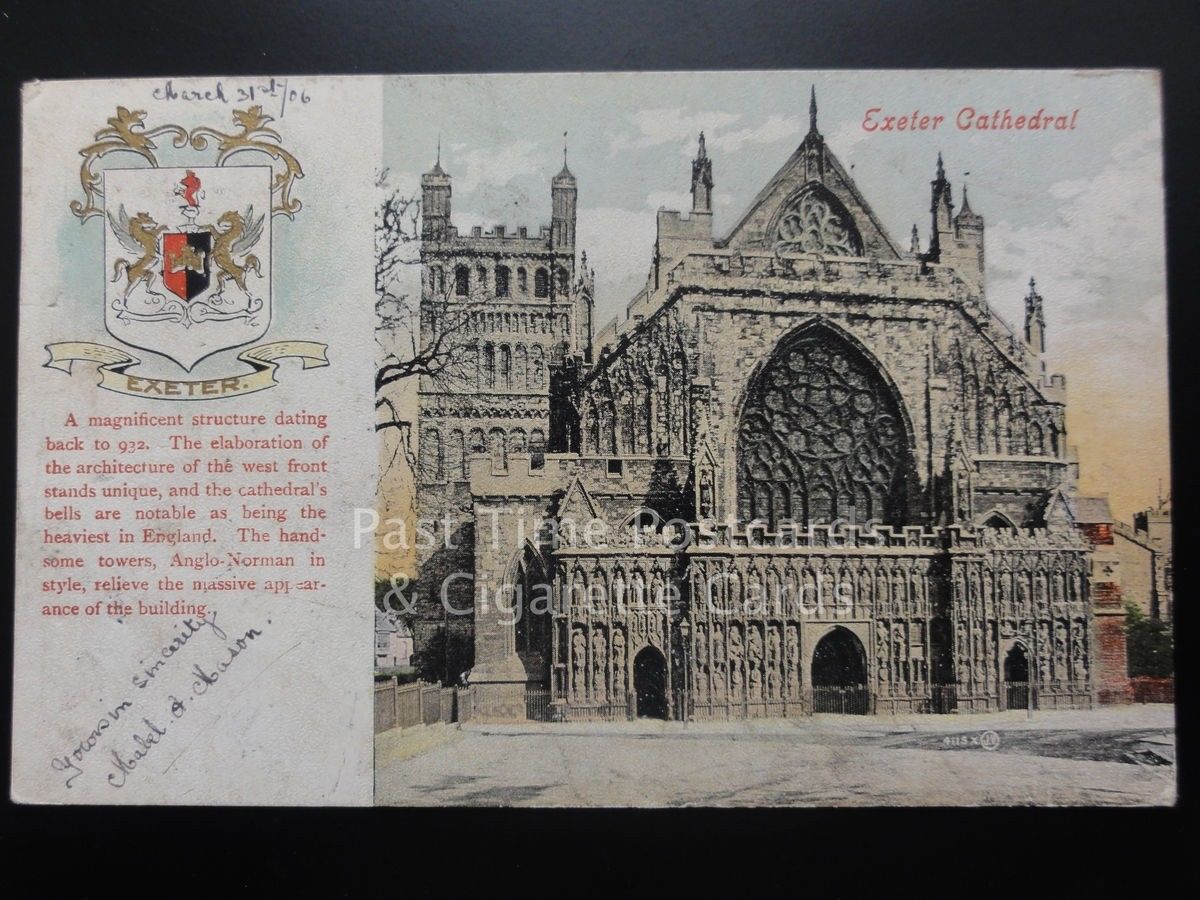 March 31st/06
Exeter Cathedral
EXETER.
A magnificent structure dating
back to 932. The elaboration of
the architecture of the west front
stands unique, and the cathedral's
bells are notable as being the
heaviest in England. The hand-
some towers, Anglo-Norman in
style, relieve the massive appear-
ance of the building.
Yours in sincerity
Mabel A. Mason.
Past Time Postcards
& Cigarette Cards
JV